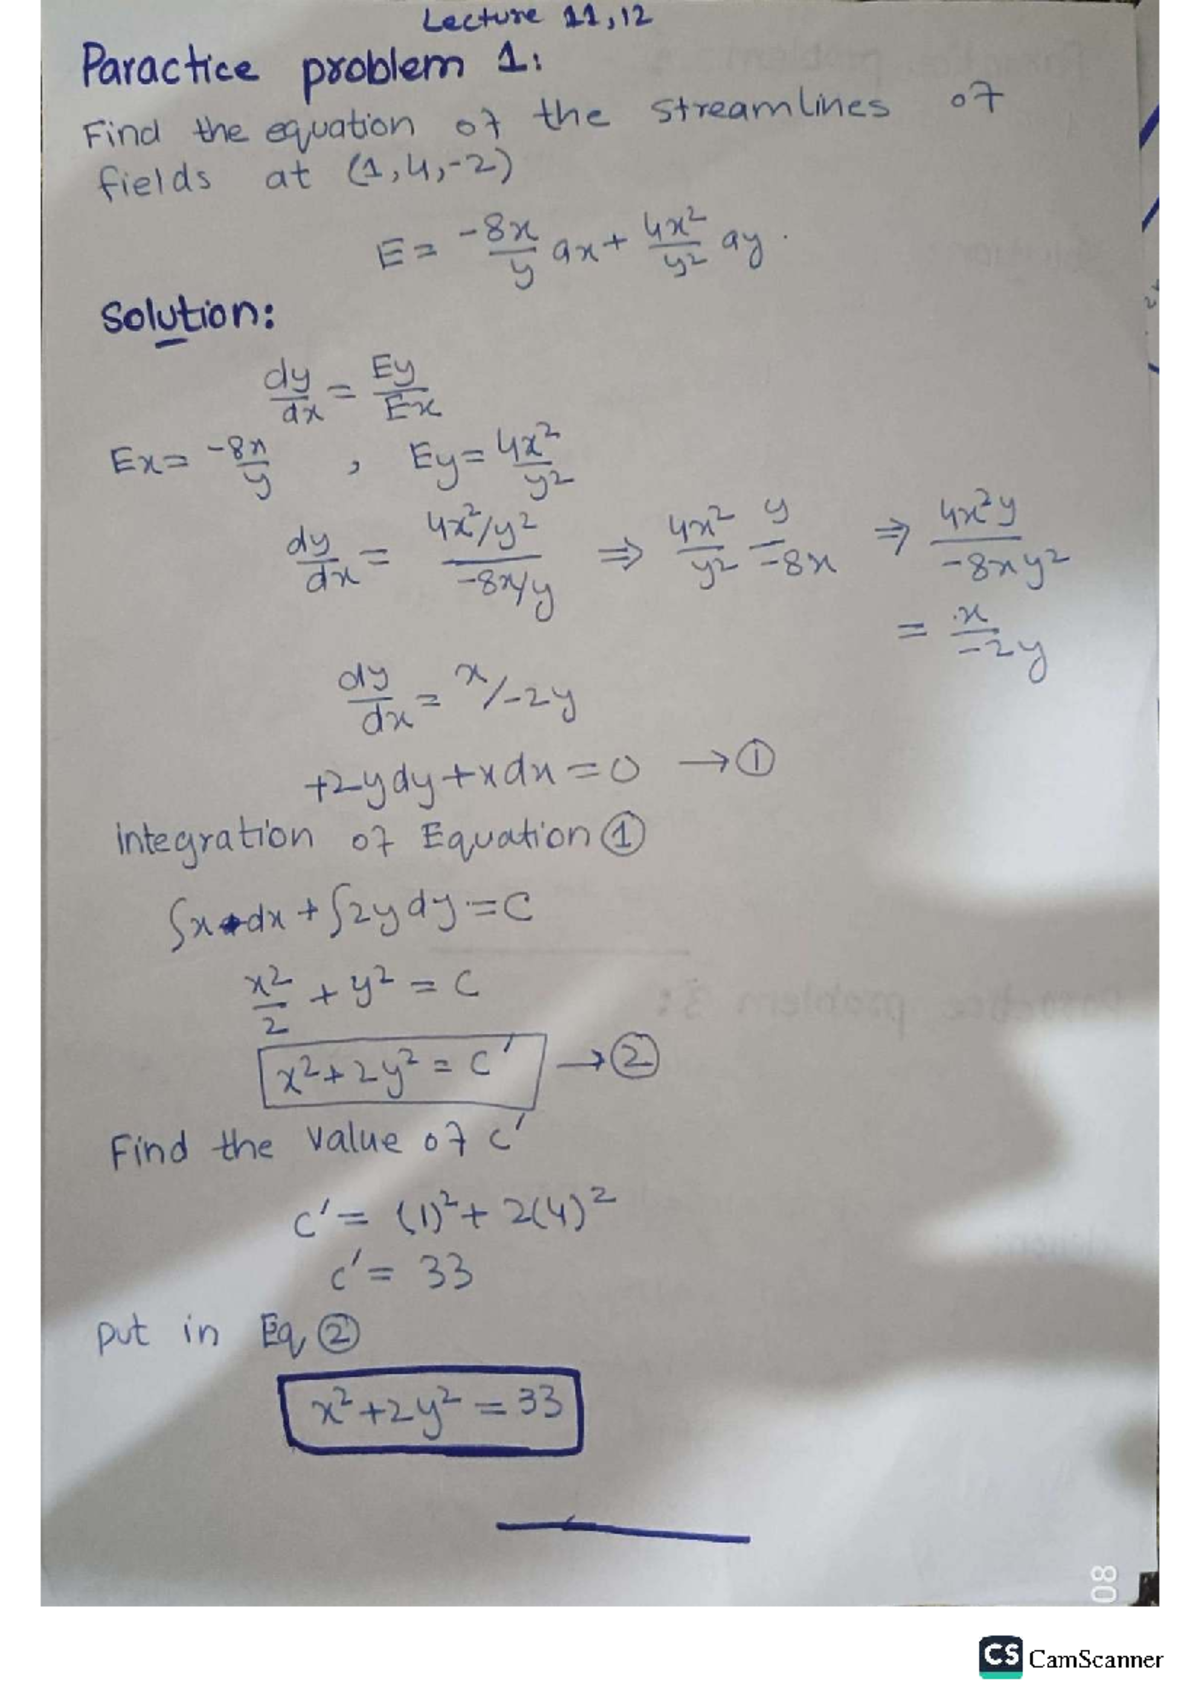 Lecture 11,12
Paractice problem 1:
Find the equation of the streamlines of
fields at (1,4,-2)
E = -8x/y ax + 4x²/y² ay.
Solution:
dy/dx = Ey/Ex
Ex = -8x/y , Ey = 4x²/y²
dy/dx = 4x²/y² / -8x/y ⇒ 4x²/y² y/-8x ⇒ 4x²y/-8xy²
= x/-2y
dy/dx = x/-2y
+2ydy+xdx=0 → ①
integration of Equation ①
∫x dx + ∫2y dy = C
x²/2 + y² = C
x²+2y² = C' → ②
Find the value of C'
C' = (1)²+ 2(4)²
C' = 33
put in Eq ②
x²+2y² = 33
08
CS CamScanner